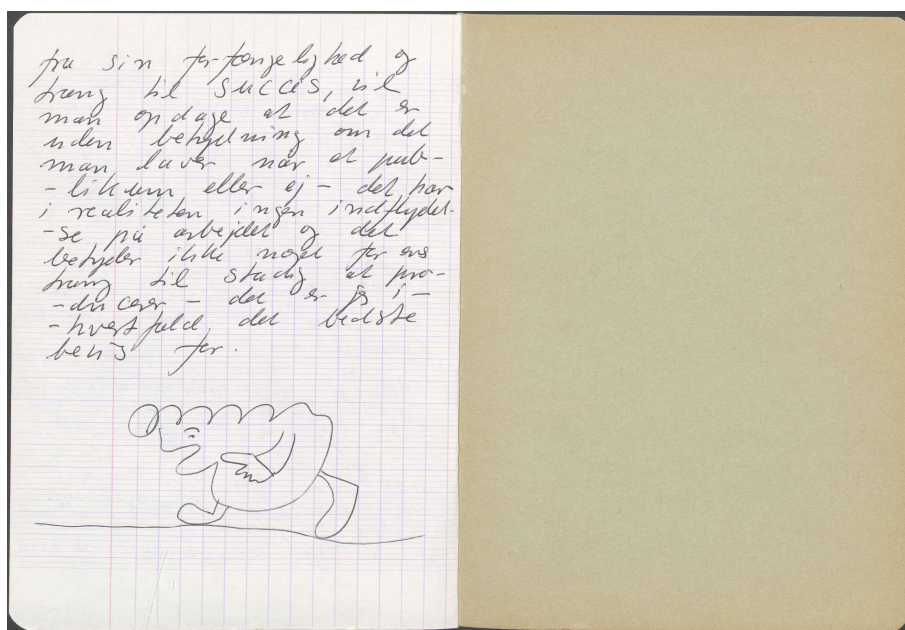 fra sin forfængelighed og
trang til succes, vil
man opdage at det er
uden betydning om det
man laver når et pub-
-likum eller ej - det har
i realiteten ingen indflydel-
-se på arbejdet og det
betyder ikke noget for ens
trang til stadig at pro-
-ducere - det er jeg i-
-hvertfald det bedste
bevis for.